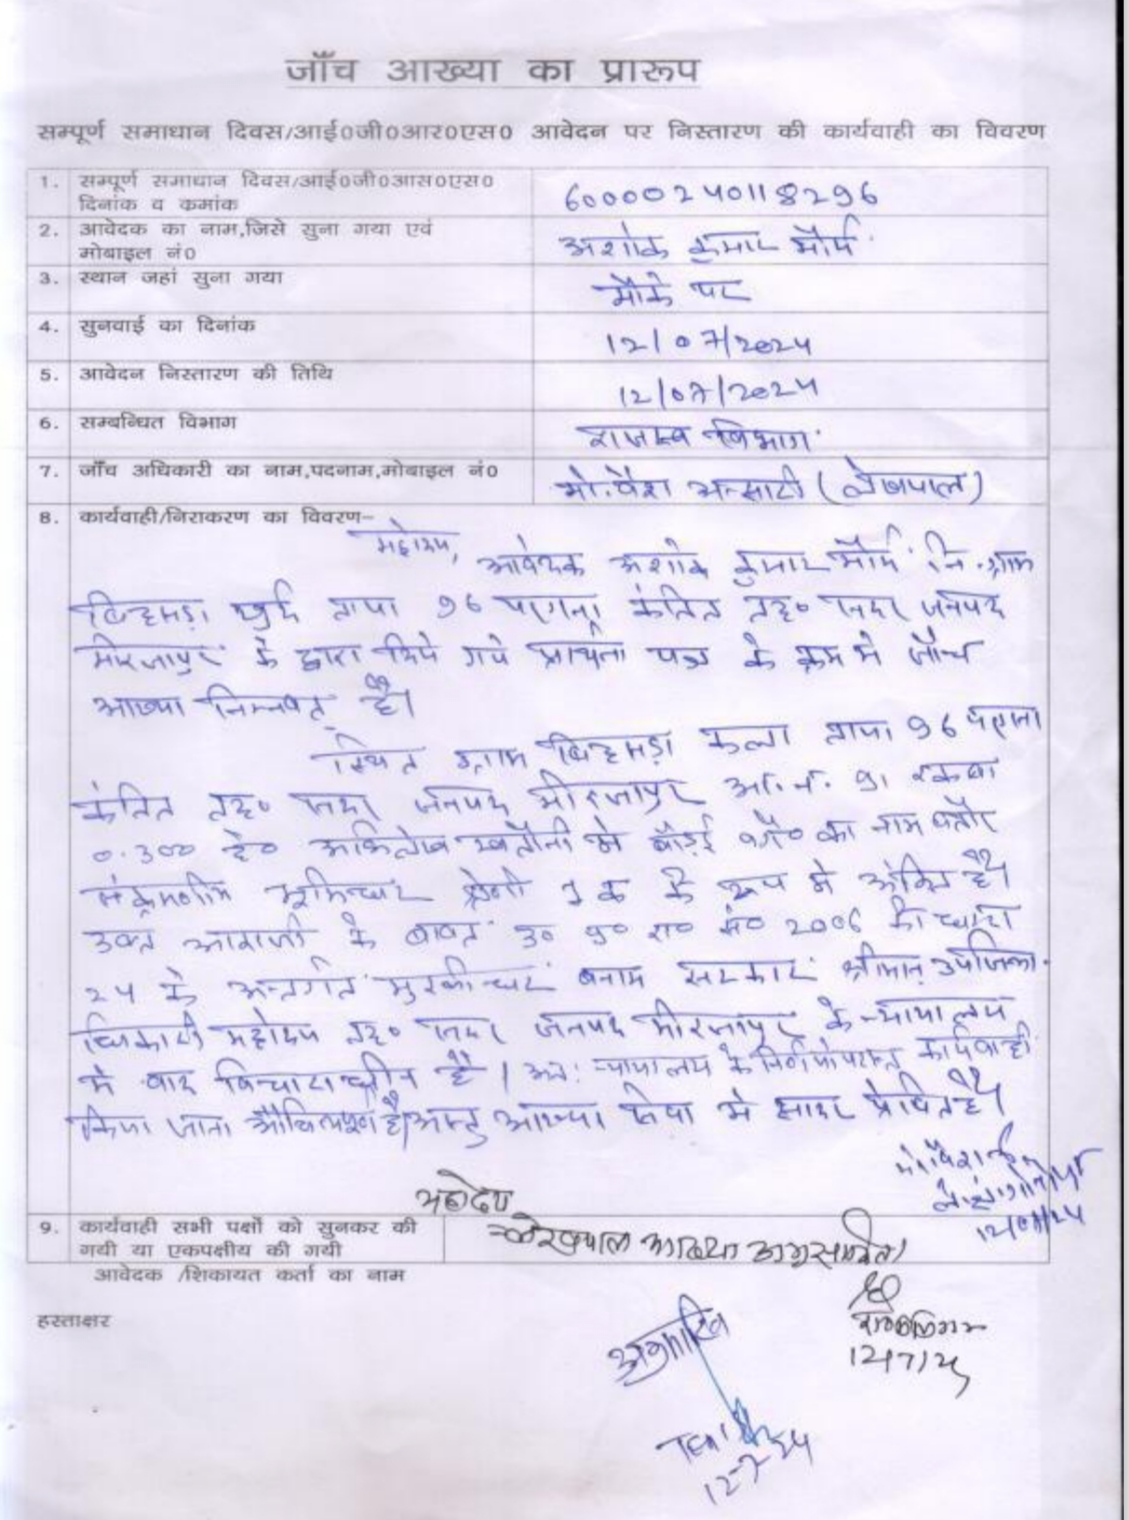 जाँच आख्या का प्रारूप
सम्पूर्ण समाधान दिवस/आई0जी0आर0एस0 आवेदन पर निस्तारण की कार्यवाही का विवरण
1. सम्पूर्ण समाधान दिवस/आई0जी0आस0एस0 दिनांक व क्रमांक 60000240118296
2. आवेदक का नाम,जिसे सुना गया एवं मोबाइल नं0 अशोक कुमार मौर्य
3. स्थान जहां सुना गया मौके पर
4. सुनवाई का दिनांक 12/07/2024
5. आवेदन निस्तारण की तिथि 12/07/2024
6. सम्बन्धित विभाग राजस्व विभाग
7. जाँच अधिकारी का नाम,पदनाम,मोबाइल नं0 मो. अन्सारी (लेखपाल)
8. कार्यवाही/निराकरण का विवरण–
महोदय,
आवेदक अशोक कुमार मौर्य नि. ग्राम
खुर्द तापा 96 परगना कंतित तह० सदर जनपद
मीरजापुर के द्वारा दिये गये प्रार्थना पत्र के क्रम मे जाँच
आख्या निम्नवत् है।
स्थित ग्राम कला तापा 96 परगना
कंतित तह० सदर जनपद मीरजापुर आ.न. 91 रकबा
0.300 हे० खतौनी मे का नाम बतौर
संक्रमणीय भूमिधर श्रेणी 1 क के रूप मे अंकित है।
उक्त आराजी के बावत उ० प्र० रा० सं० 2006 की धारा
24 के अन्तर्गत बनाम सरकार श्रीमान् उपजिला
धिकारी महोदय तह० सदर जनपद मीरजापुर के न्यायालय
मे वाद विचाराधीन है। अतः न्यायालय के निर्णयोपरान्त कार्यवाही
किया जाना औचित्यपूर्ण है। अस्तु आख्या सेवा मे सादर प्रेषित है।
12/07/24
महोदय
9. कार्यवाही सभी पक्षों को सुनकर की गयी या एकपक्षीय की गयी
लेखपाल आख्या अग्रसारित।
आवेदक /शिकायत कर्ता का नाम
हस्ताक्षर
अग्रसारित
12/7/24
12-7-24